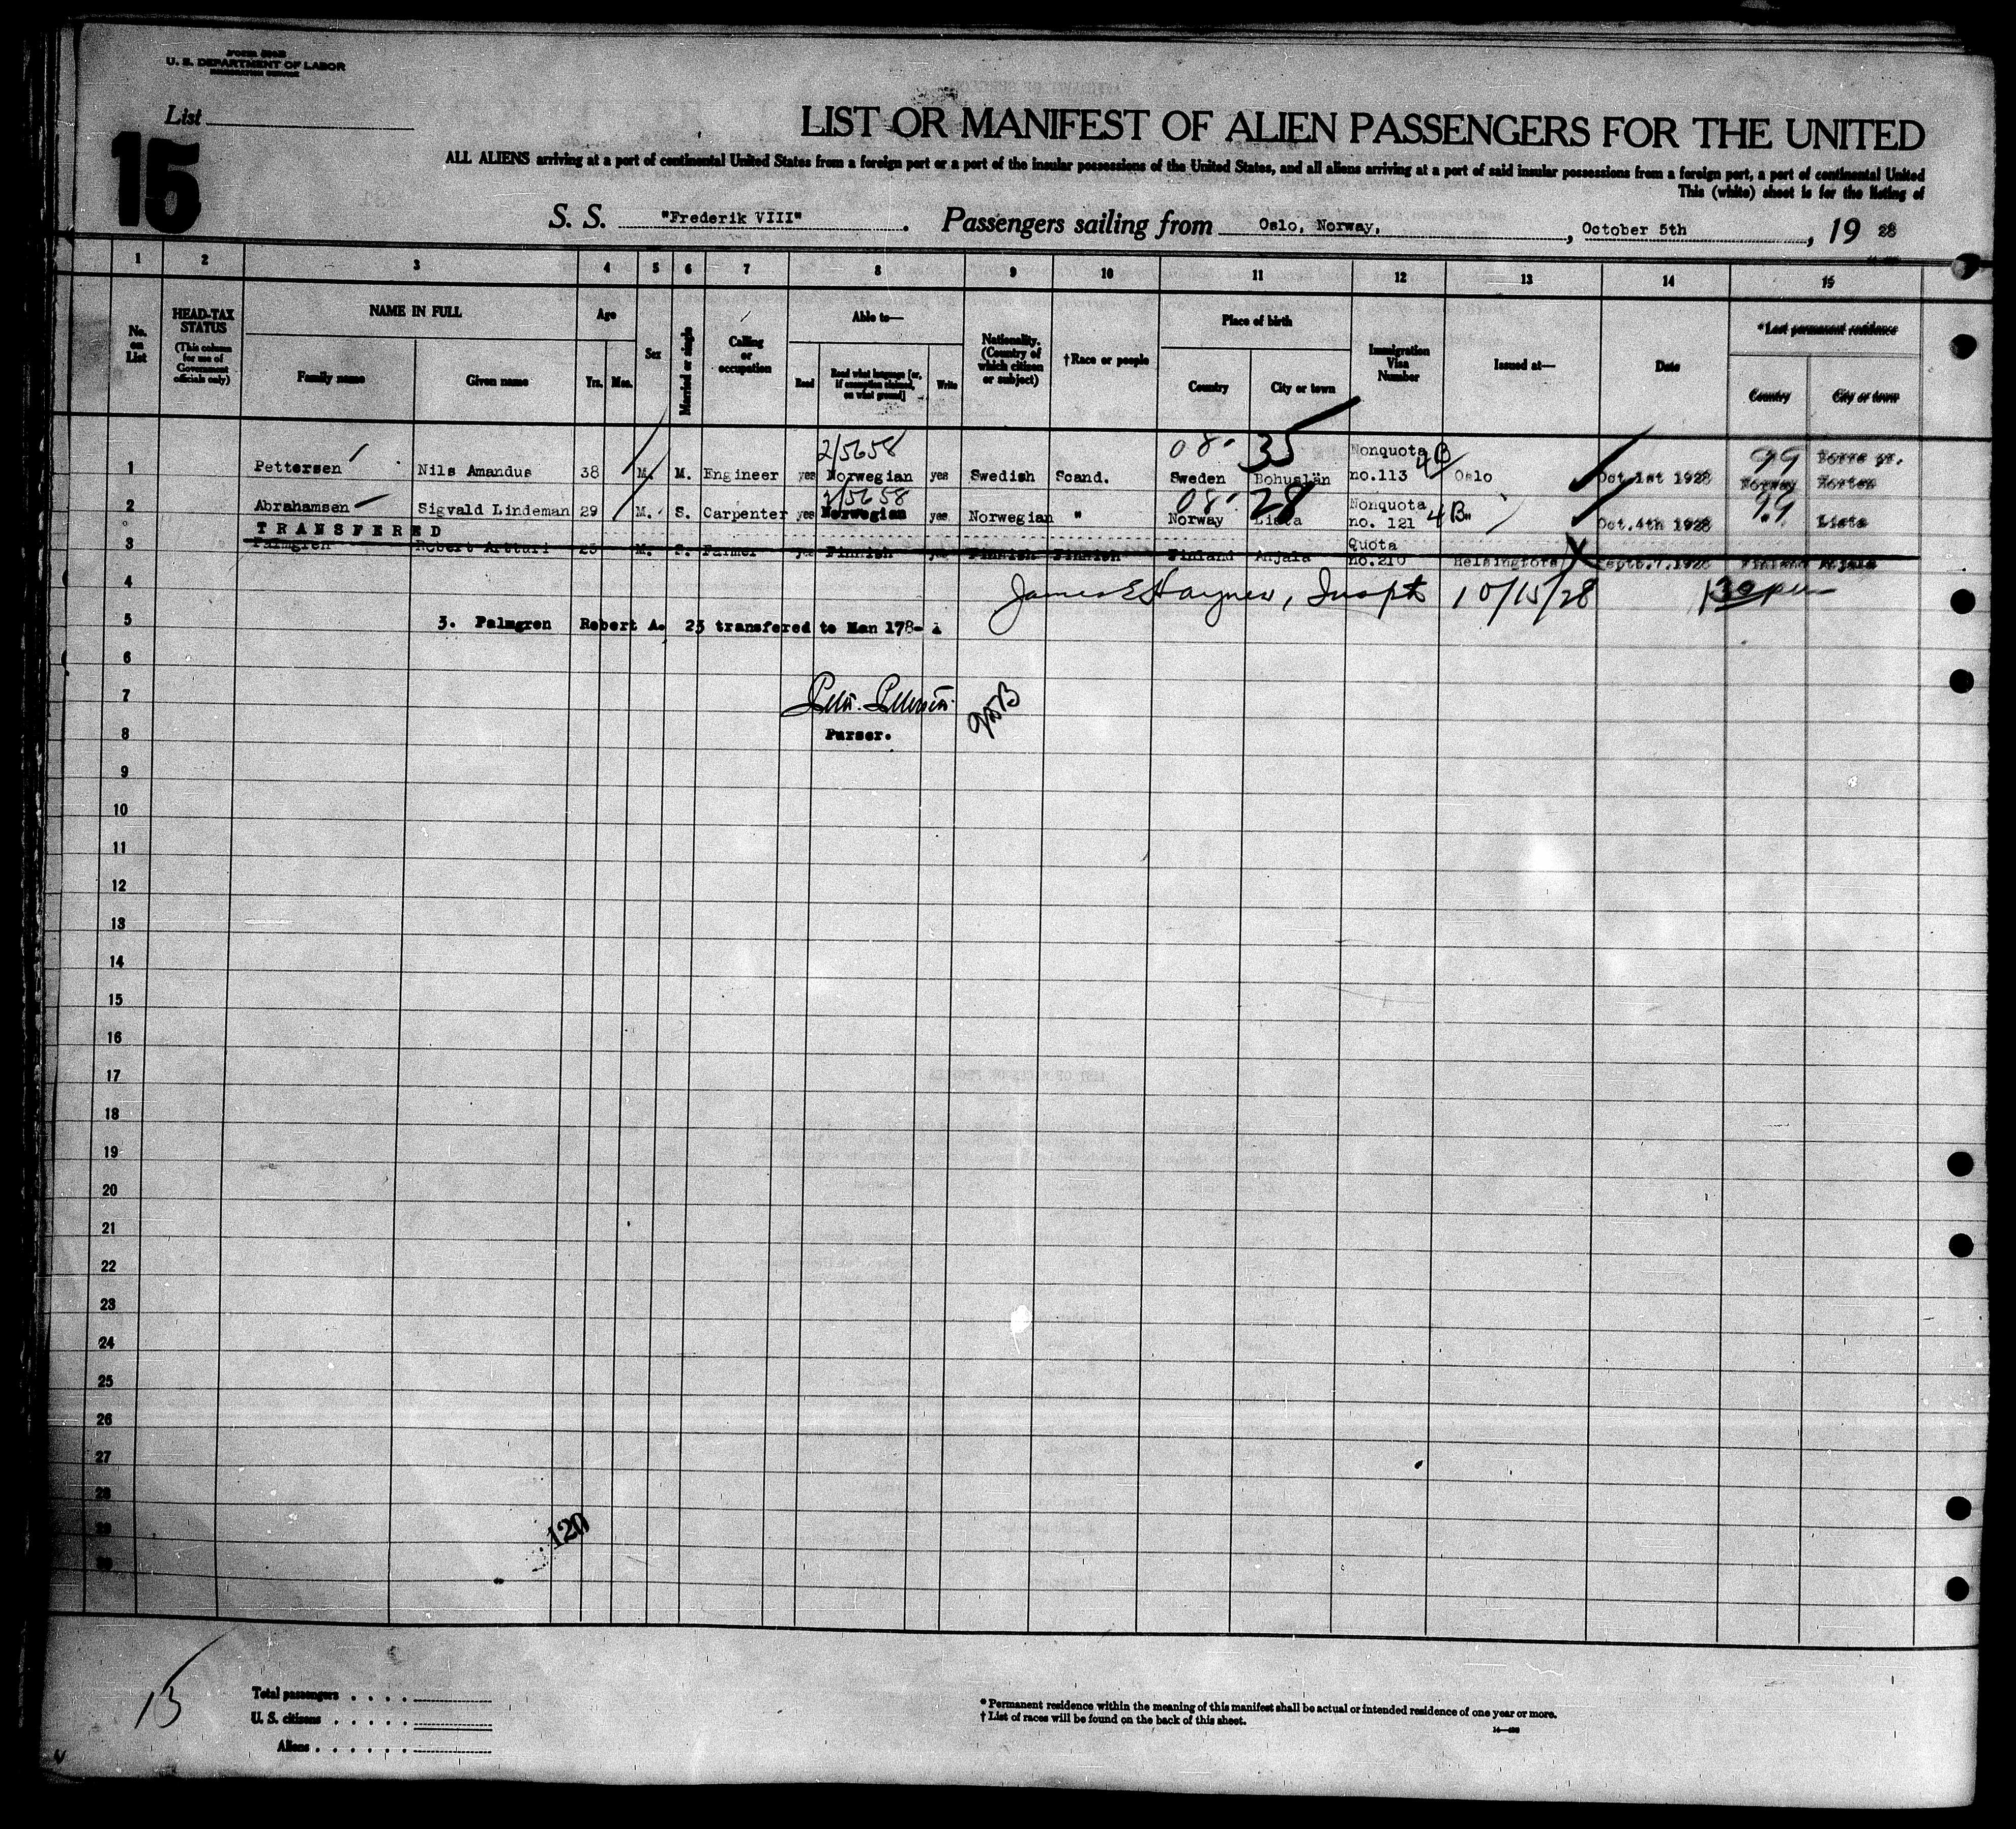 FORM 500B
U. S. DEPARTMENT OF LABOR
IMMIGRATION SERVICE
List
15
LIST OR MANIFEST OF ALIEN PASSENGERS FOR THE UNITED
ALL ALIENS arriving at a port of continental United States from a foreign port or a port of the insular possessions of the United States, and all aliens arriving at a port of said insular possessions from a foreign port, a port of continental United
This (white) sheet is for the listing of
S. S. "Frederik VIII". Passengers sailing from Oslo, Norway, , October 5th , 19 28
1 2 3 4 5 6 7 8 9 10 11 12 13 14 15
No. on List
HEAD-TAX STATUS (This column for use of Government officials only)
NAME IN FULL
Family name Given name
Age
Yrs. Mos.
Sex
Married or single
Calling or occupation
Able to—
Read Read what language [or, if exemption claimed, on what ground] Write
Nationality. (Country of which citizen or subject)
†Race or people
Place of birth
Country City or town
Immigration Visa Number
Issued at—
Date
*Last permanent residence
Country City or town
2/5658 08- 35 Nonquota 4B 99 Borre pr.
1 Pettersen Nils Amandus 38 M. M. Engineer yes Norwegian yes Swedish Scand. Sweden Bohuslän no.113 Oslo Oct.1st 1928 Norway Horten
2/5658 08- 28 Nonquota 99
2 Abrahamsen Sigvald Lindeman 29 M. S. Carpenter yes Norwegian yes Norwegian " Norway Lista no. 121 4B " Oct.4th 1928 Lista
TRANSFERED
3 Palmgren Robert Artturi 23 M. S. Farmer yes Finnish yes Finnish Finnish Finland Anjala Quota no.210 Helsingfors X Septb.7.1928 Finland Anjala
4 James E Haynes, Inspt 10/15/28
5 3. Palmgren Robert A. 23 transfered to Man 178-
6
7
8 Purser.
9
10
11
12
13
14
15
16
17
18
19
20
21
22
23
24
25
26
27
28
29
30
120
15
Total passengers . . . .
U. S. citizens . . . . .
Aliens . . . . . .
* Permanent residence within the meaning of this manifest shall be actual or intended residence of one year or more.
† List of races will be found on the back of this sheet.